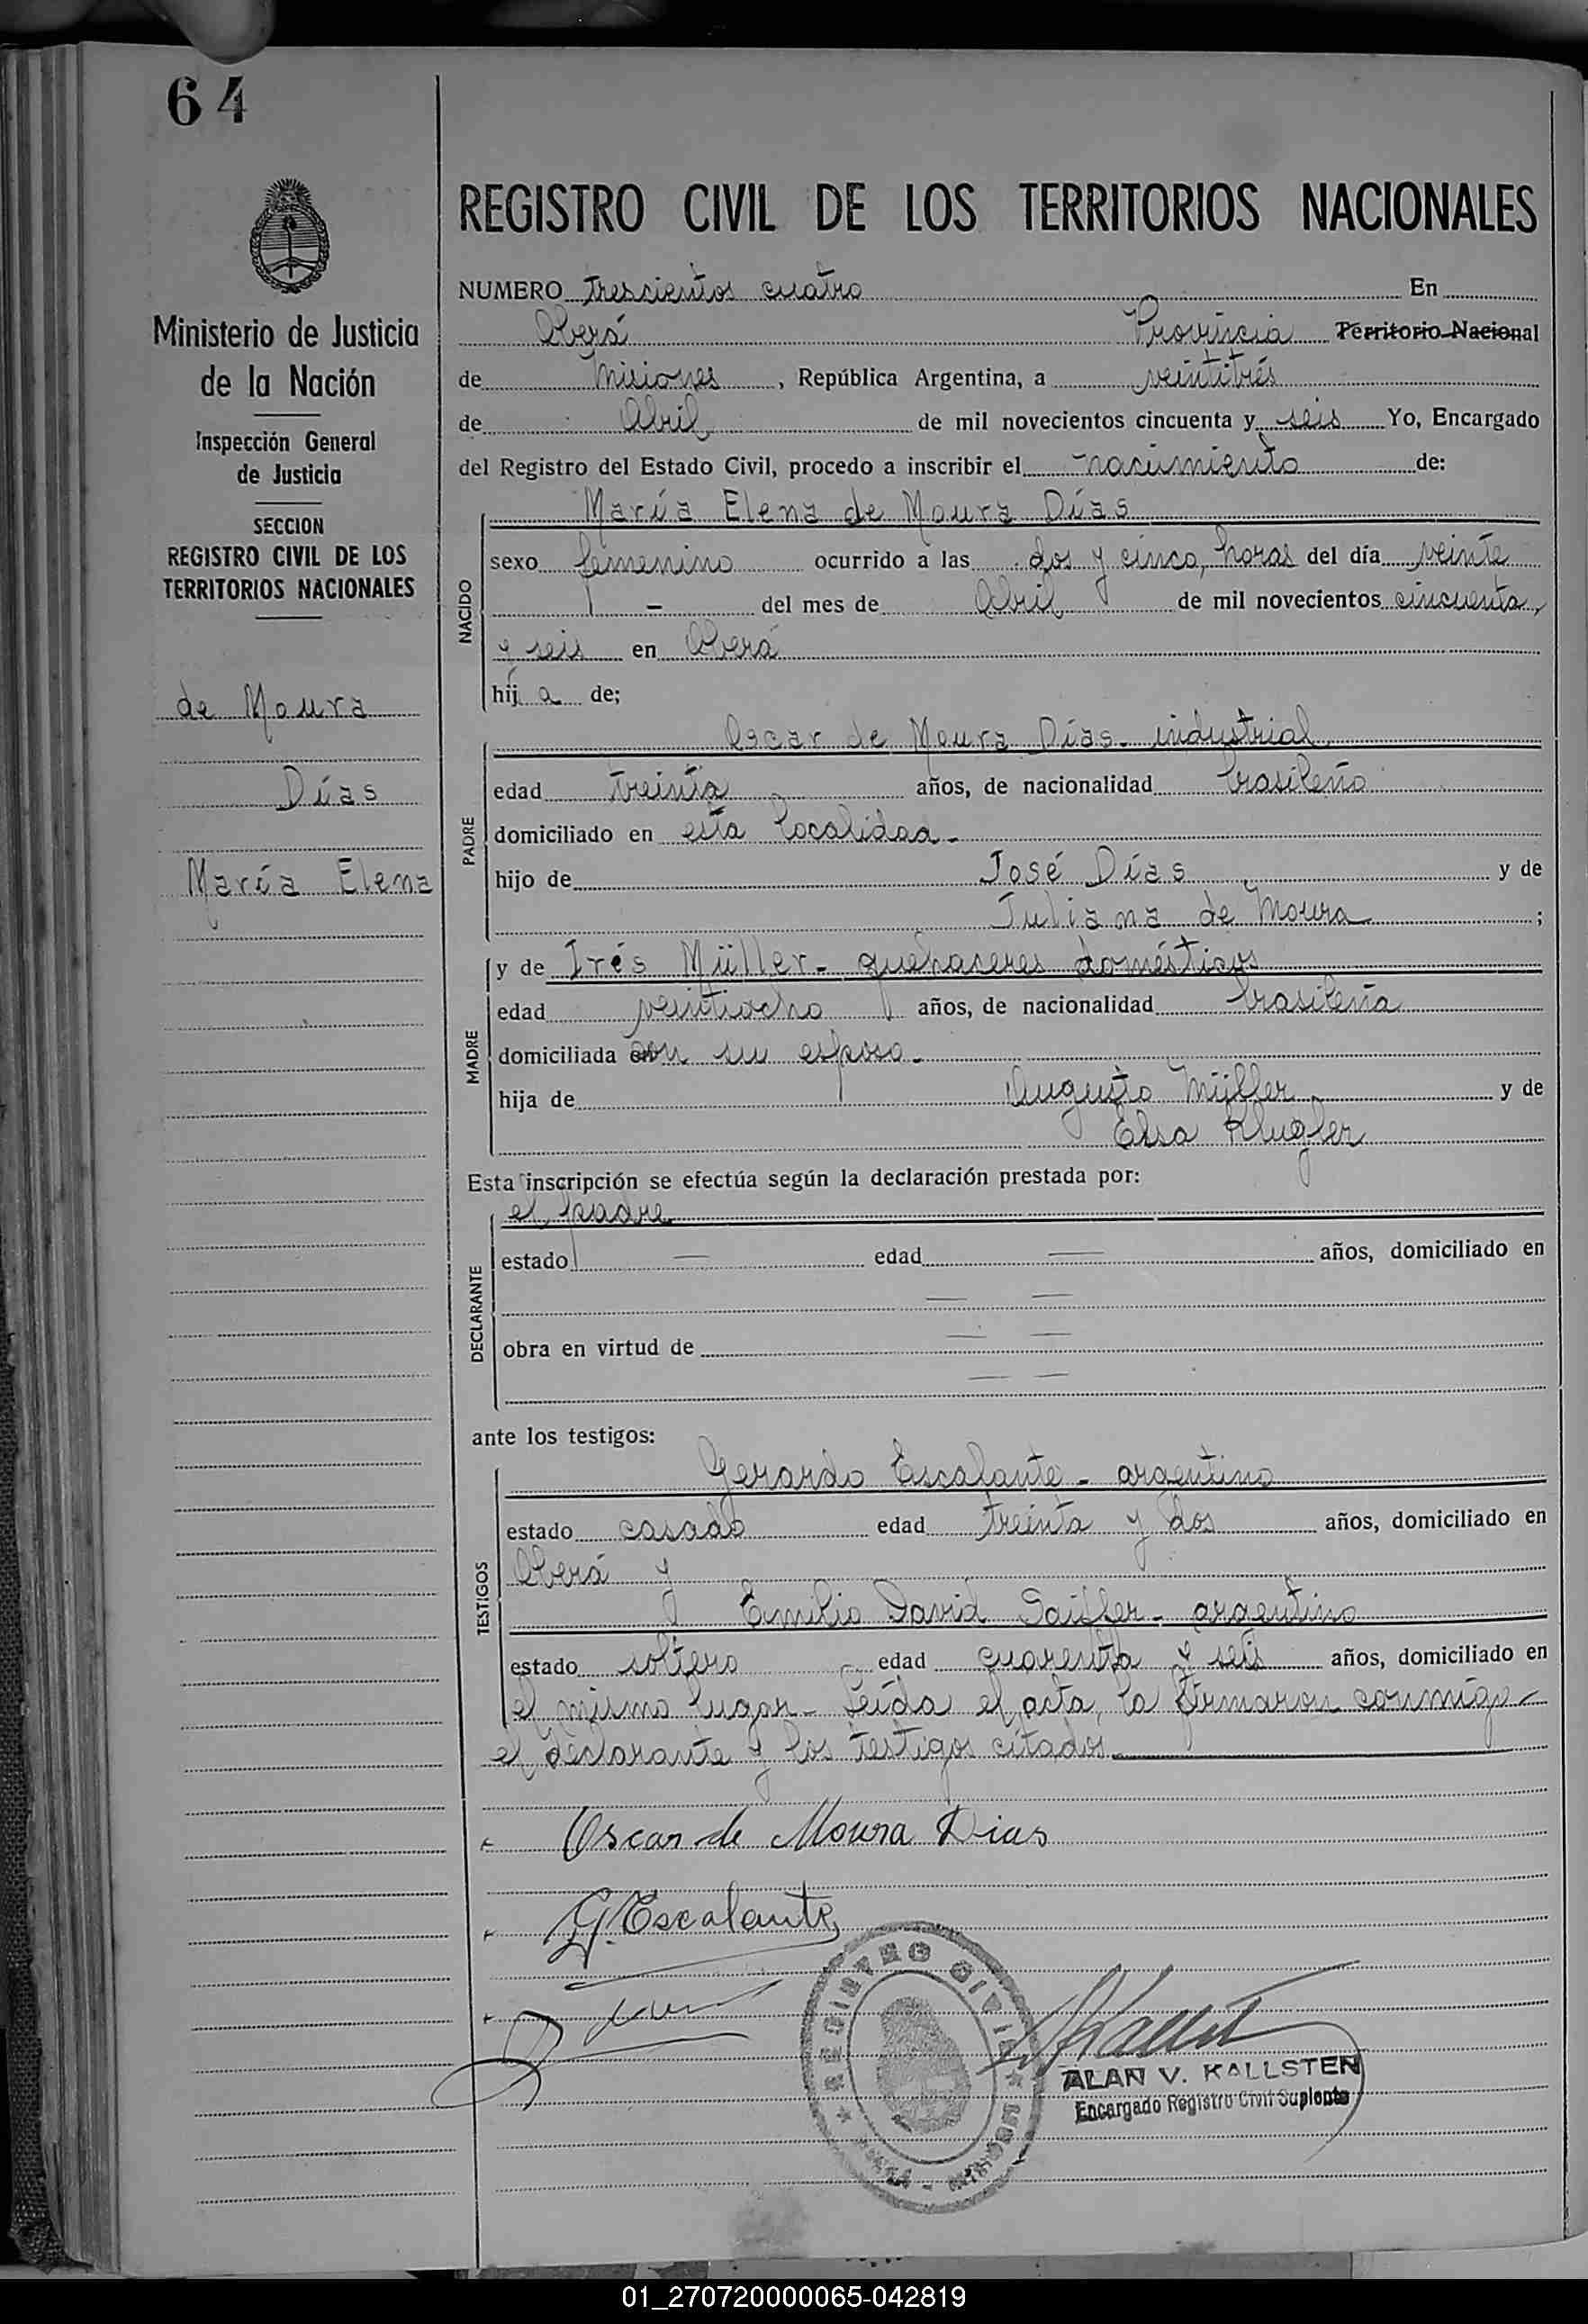 64
Ministerio de Justicia
de la Nación
Inspección General
de Justicia
SECCION
REGISTRO CIVIL DE LOS
TERRITORIOS NACIONALES
de Moura
Días
María Elena
REGISTRO CIVIL DE LOS TERRITORIOS NACIONALES
NUMERO trescientos cuatro En
Oberá Provincia Territorio Nacional
de Misiones, República Argentina, a veintitrés
de Abril de mil novecientos cincuenta y seis Yo, Encargado
del Registro del Estado Civil, procedo a inscribir el nacimiento de:
NACIDO
María Elena de Moura Días
sexo femenino ocurrido a las dos y cinco, horas del día veinte
— del mes de Abril de mil novecientos cincuenta,
y seis en Oberá
hij a de;
PADRE
Oscar de Moura Días - industrial
edad treinta años, de nacionalidad brasileño
domiciliado en esta localidad -
hijo de José Días y de
Juliana de Moura ;
MADRE
y de Irés Müller - quehaseres domésticos
edad veintiocho años, de nacionalidad brasileña
domiciliada con su esposo -
hija de Augusto Müller y de
Elsa Klugler
Esta inscripción se efectúa según la declaración prestada por:
DECLARANTE
el padre
estado — edad — años, domiciliado en
— —
obra en virtud de — —
— —
ante los testigos:
TESTIGOS
Gerardo Escalante - argentino
estado casado edad treinta y dos años, domiciliado en
Oberá y
Emilio David - argentino
estado soltero edad cuarenta y seis años, domiciliado en
el mismo lugar - Leída el acta, la firmaron conmigo -
el declarante y los testigos citados
Oscar de Moura Dias
G. Escalante
REGISTRO CIVIL
ALAN V. KALLSTEN
Encargado Registro Civil Suplente
01_270720000065-042819